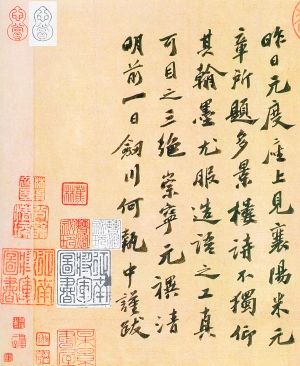 昨日元度座上見襄陽米元
章所題多景樓詩不獨仰
其翰墨尤服造語之工真
可目之三絕崇寧元禩清
明前一日劔川何執中謹跋